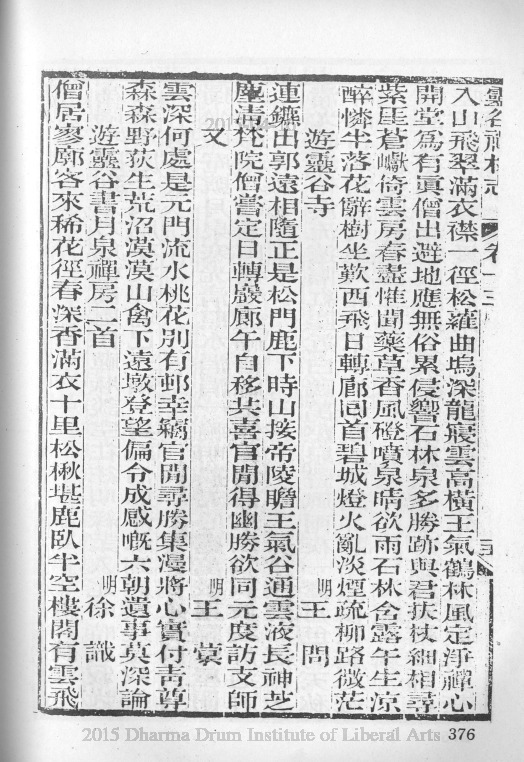 靈谷禪林志 卷十三
入山飛翠滿衣襟一徑松蘿曲塢深龍寢雲高橫王氣鶴林風定淨禪心
開堂爲有眞僧出避地應無俗累侵響石林泉多勝跡與君扶杖細相尋
紫崖蒼巘倚雲房春盡惟聞藥草香風磴噴泉晴欲雨石林含露午生涼
醉憐半落花辭樹坐歎西飛日轉廊囘首碧城燈火亂淡煙疏柳路微茫
遊靈谷寺 明王問
連鑣出郭遠相隨正是松門鹿下時山接帝陵瞻王氣谷通雲液長神芝
塵淸梵院僧嘗定日轉巖廊午自移共喜官閒得幽勝欲同元度訪文師
又 明王
雲深何處是元門流水桃花別有邨幸竊官閒尋勝集漫將心實付靑尊
森森野荻生荒沼漠漠山禽下遠墩登望偏令成感嘅六朝遺事莫深論
遊靈谷書月泉禪房二首 明徐識
僧居寥廓客來稀花徑春深香滿衣十里松楸堪鹿臥半空樓閣有雲飛
2015 Dharma Drum Institute of Liberal Arts 376